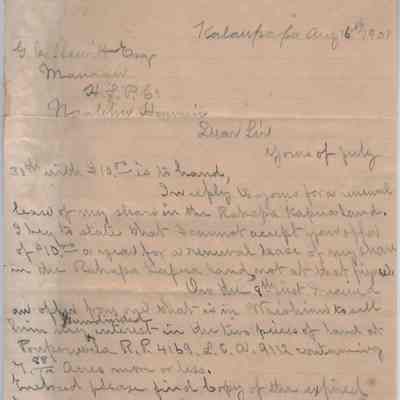 Kalaupapa Aug 16th 1901
G. C. Hewitt Esq
Manager
H. S. P. Co
Naalehu Hawaii
Dear Sir
Yours of July
30th with $10.00 is to hand,
In reply to yours for a renewal
lease of my share in the Kapua land.
I beg to state that I cannot accept your offer
of $10.00 a year for a renewal lease of my share
in the Kapua land, not at that figure.
On the 9th inst I receive
an offer from one that is in Honolulu to sell
him my undivided interest in the two pieces of land at
R.P. 4169, L.C.A. 9112 containing
7 88/100 Acres more or less.
Enclosed please find copy of the expired